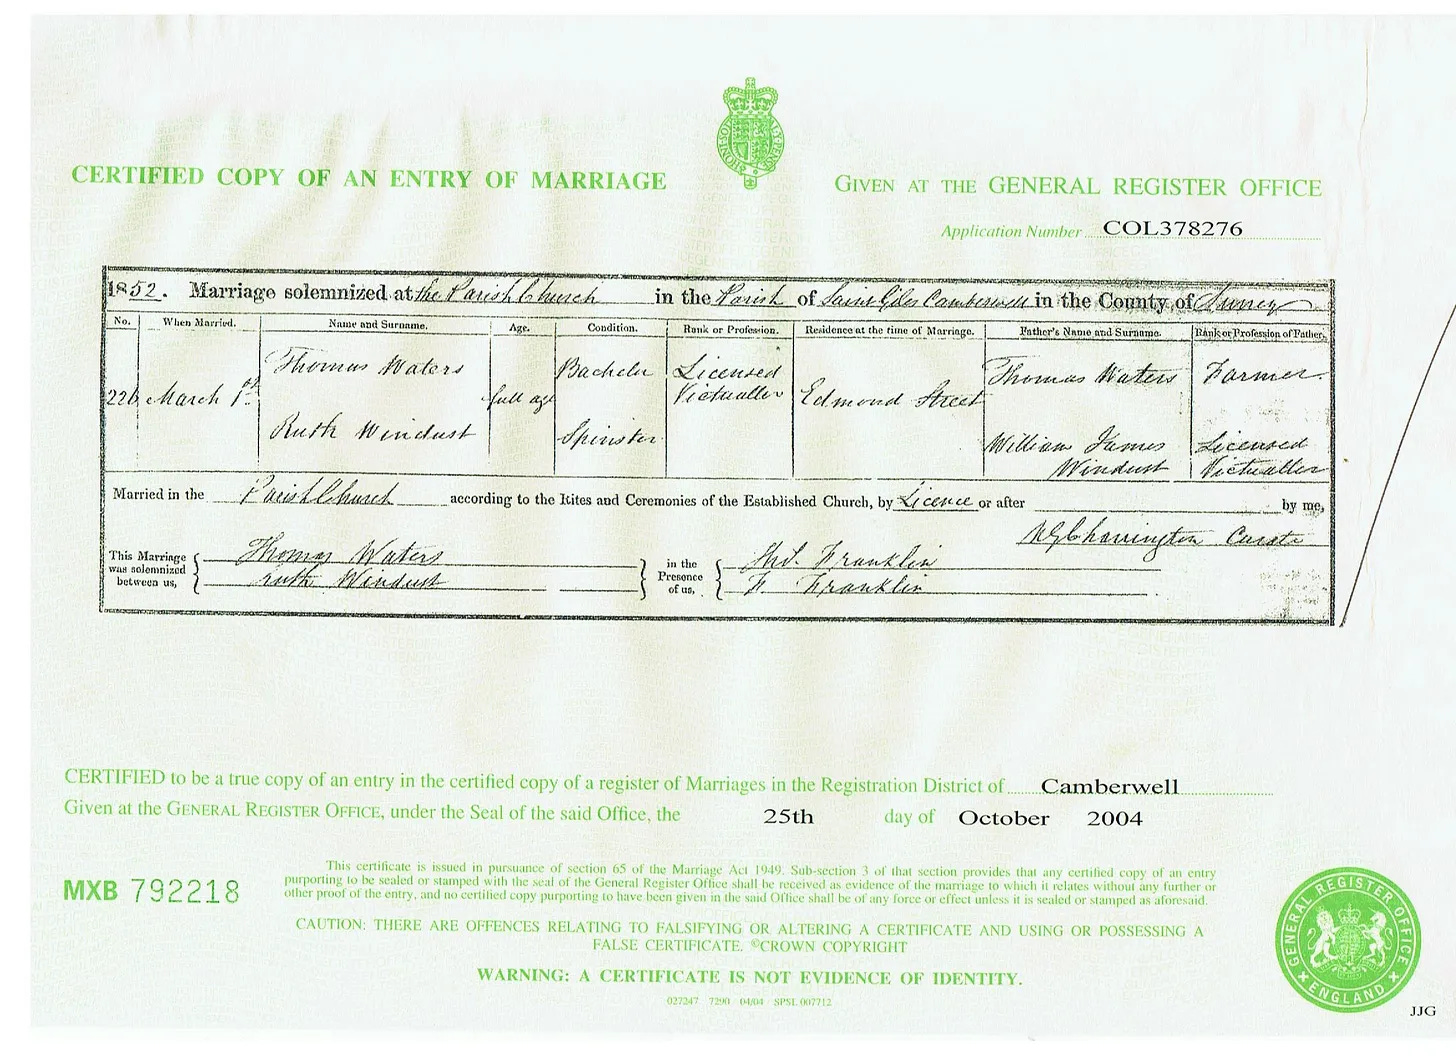 CERTIFIED COPY OF AN ENTRY OF MARRIAGE
GIVEN AT THE GENERAL REGISTER OFFICE
Application Number COL378276
1852. Marriage solemnized at the Parish Church in the Parish of Saint Giles Camberwell in the County of Surrey
No. When Married. Name and Surname. Age. Condition. Rank or Profession. Residence at the time of Marriage. Father's Name and Surname. Rank or Profession of Father.
Thomas Waters Bachelor Licensed Victualler Thomas Waters Farmer.
226 March 1st full age Edmond Street
Ruth Windust Spinster William James Windust Licensed Victualler
Married in the Parish Church according to the Rites and Ceremonies of the Established Church, by Licence or after by me,
Charrington Curate
This Marriage was solemnized between us, Thomas Waters in the Presence of us, Franklin
Ruth Windust F. Franklin
CERTIFIED to be a true copy of an entry in the certified copy of a register of Marriages in the Registration District of Camberwell
Given at the GENERAL REGISTER OFFICE, under the Seal of the said Office, the 25th day of October 2004
MXB 792218
This certificate is issued in pursuance of section 65 of the Marriage Act 1949. Sub-section 3 of that section provides that any certified copy of an entry
purporting to be sealed or stamped with the seal of the General Register Office shall be received as evidence of the marriage to which it relates without any further or
other proof of the entry, and no certified copy purporting to have been given in the said Office shall be of any force or effect unless it is sealed or stamped as aforesaid.
CAUTION: THERE ARE OFFENCES RELATING TO FALSIFYING OR ALTERING A CERTIFICATE AND USING OR POSSESSING A
FALSE CERTIFICATE. ©CROWN COPYRIGHT
WARNING: A CERTIFICATE IS NOT EVIDENCE OF IDENTITY.
027247 7290 04/04 SPSL 007712
GENERAL REGISTER OFFICE
ENGLAND
JJG